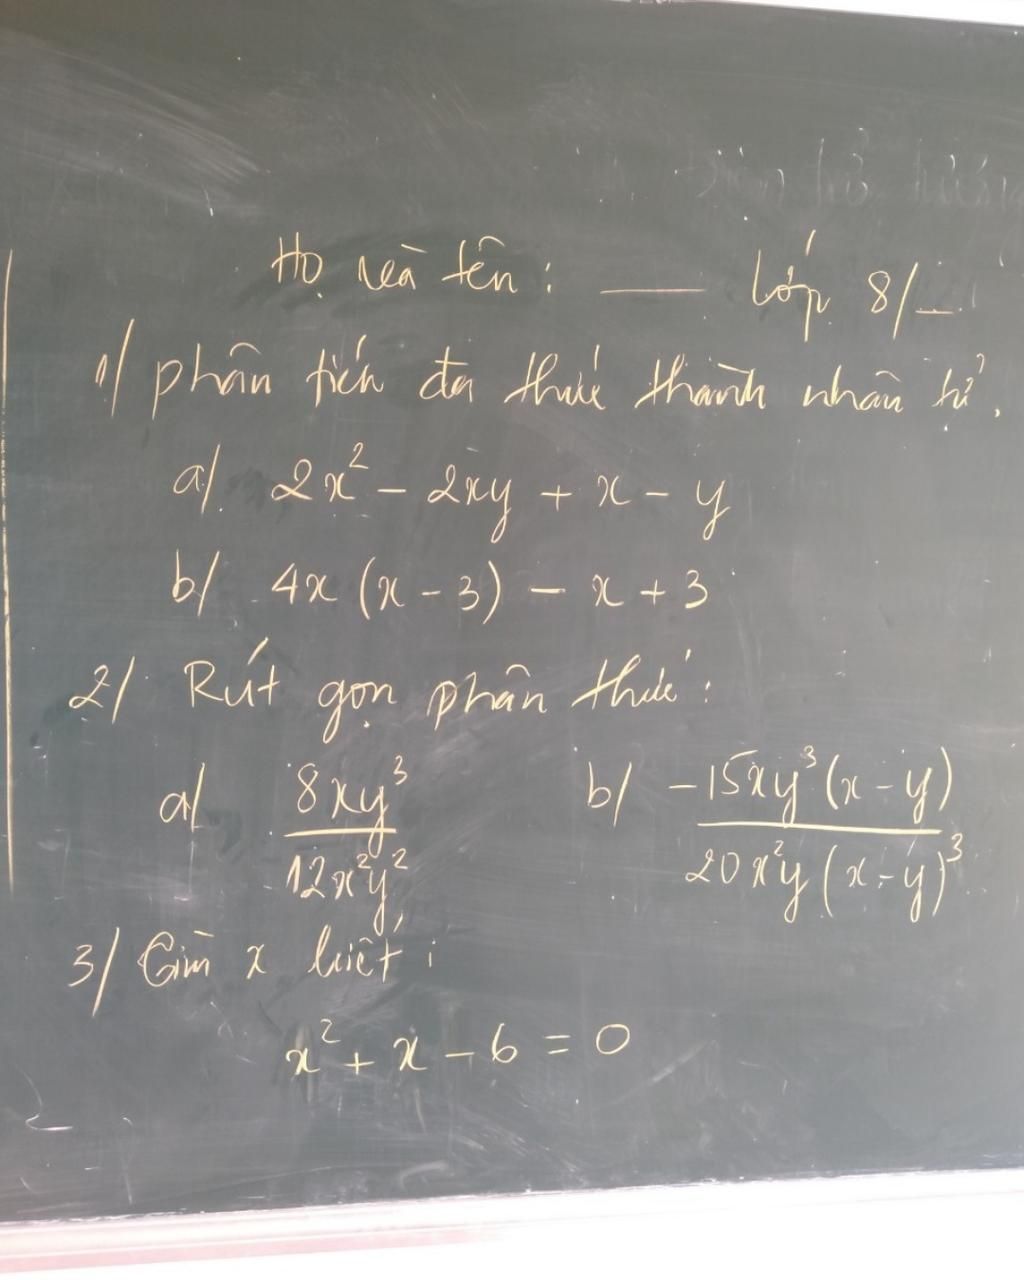 Họ và tên: ___ Lớp 8/_
1/ phân tích đa thức thành nhân tử.
a/ 2x² - 2xy + x - y
b/ 4x (x - 3) - x + 3
2/ Rút gọn phân thức:
a/ 8xy³ / 12x²y² b/ -15xy³(x - y) / 20x²y(x - y)³
3/ Tìm x biết:
x² + x - 6 = 0